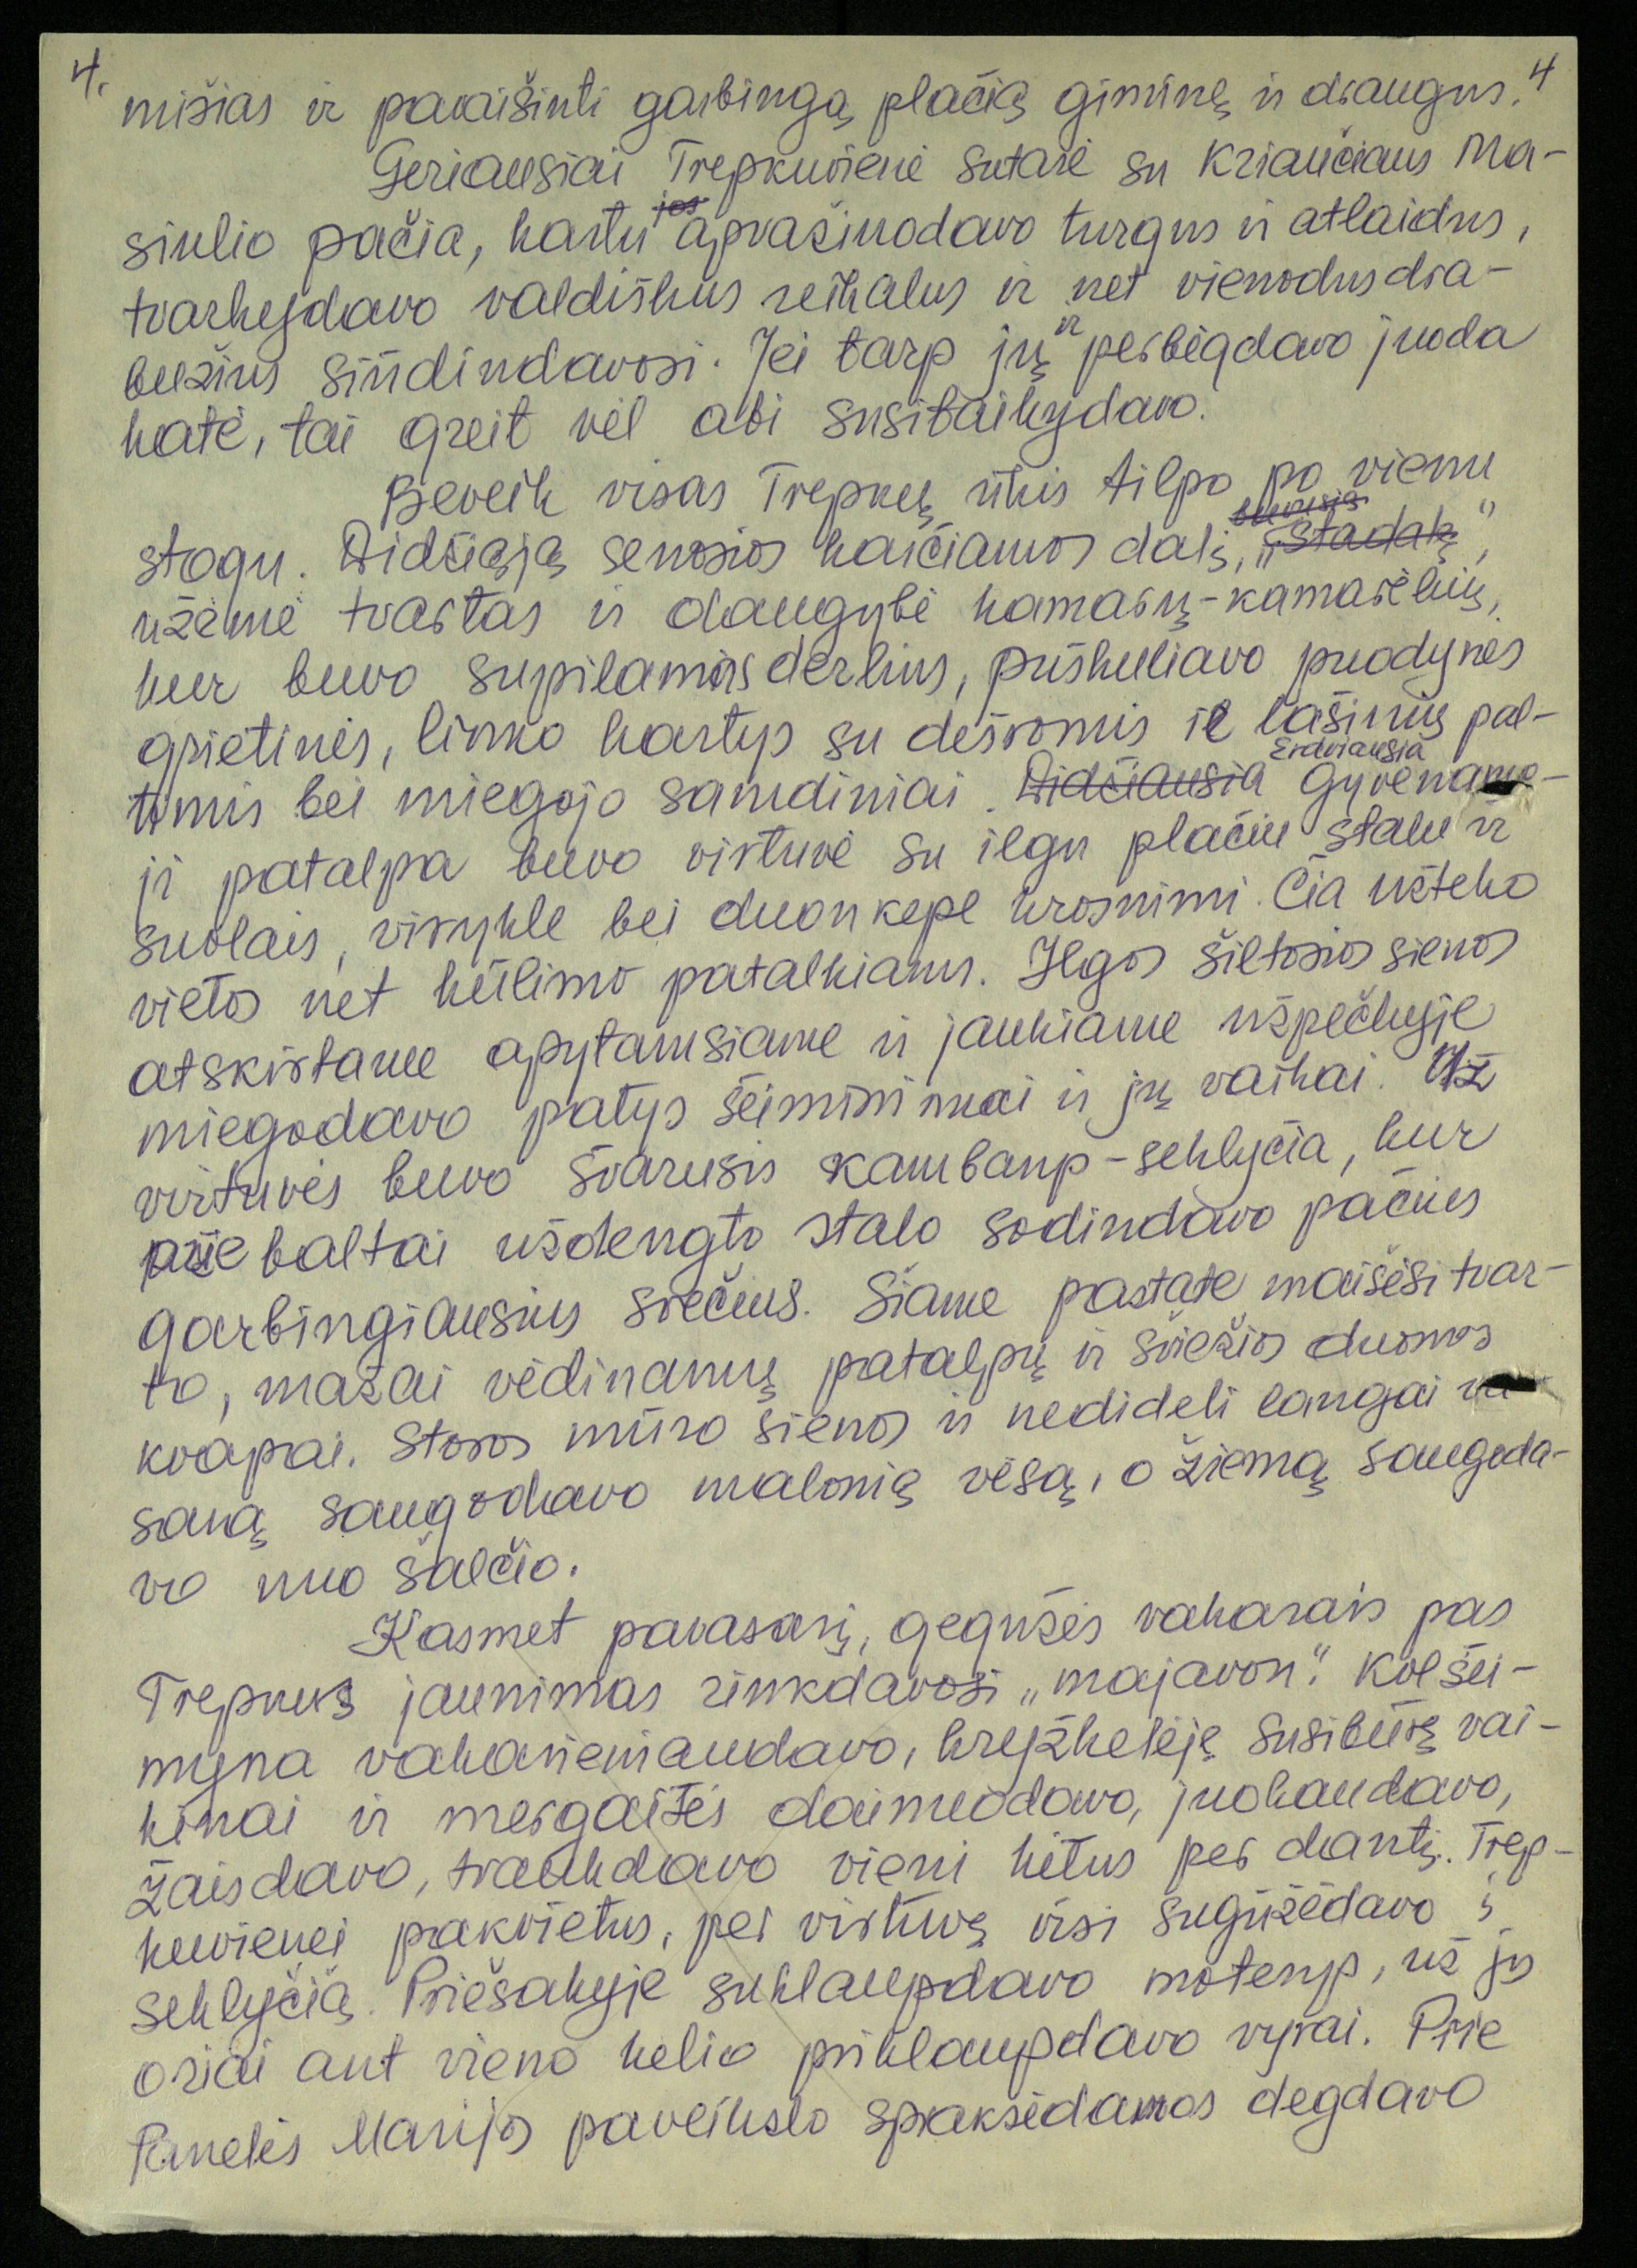 4. 4
mišias ir pavaišinti garbingą plačią giminę ir draugus.
Geriausiai Trepkuvienė sutarė su kriaučiaus Ma-
siulio pačia, kartu jos apvažinodavo turgus ir atlaidus,
tvarkydavo valdiškus reikalus ir net vienodus dra-
bužius siūdindavosi. Jei tarp jų ir perbėgdavo juoda
katė, tai greit vėl abi susitaikydavo.
Beveik visas Trepkų ūkis tilpo po vienu
stogu. Didžiąją senosios kaičiamos dalį, buvusią „stadalą",
užėmė tvartas ir daugybė kamarų-kamarėlių,
kur buvo supilamas derlius, pūškuliavo puodynės
grietinės, linko kartys su dešromis ir lašinių pal-
timis bei miegojo samdiniai. Didžiausia Erdviausia gyvenamo-
ji patalpa buvo virtuvė su ilgu plačiu stalu ir
suolais, virykle bei duonkepe krosnimi. Čia užteko
vietos net kūlimo patalkiams. Ilgos šiltosios sienos
atskirtame apytamsiame ir jaukiame užpečkyje
miegodavo patys šeimininkai ir jų vaikai. Už
virtuvės buvo švarusis kambarys-seklyčia, kur
prie baltai uždengto stalo sodindavo pačius
garbingiausius svečius. Šiame pastate maišėsi tvar-
to, mažai vėdinamų patalpų ir šviežios duonos
kvapai. Storos mūro sienos ir nedideli langai va-
sarą saugodavo malonią vėsą, o žiemą saugoda-
vo nuo šalčio.
Kasmet pavasarį, gegužės vakarais pas
Trepkus jaunimas rinkdavosi „majavon". Kol šei-
myna vakarieniaudavo, kryžkelėje susibūrę vai-
kinai ir mergaitės dainuodavo, juokaudavo,
žaisdavo, traukdavo vieni kitus per dantį. Trep-
kuvienei pakvietus, per virtuvę visi sugūžėdavo į
seklyčią. Priešakyje suklaupdavo moterys, už jų
oriai ant vieno kelio priklaupdavo vyrai. Prie
Panelės Marijos paveikslo spraksėdamos degdavo